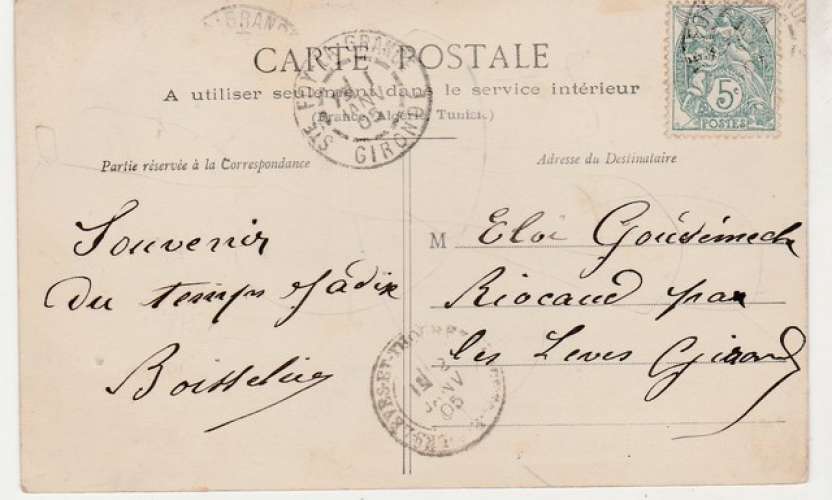 CARTE POSTALE
A utiliser seulement dans le service intérieur
(France, Algérie, Tunisie)
STE FOY LA GRANDE GIRONDE
JANV
05
5c
POSTES
Partie réservée à la Correspondance
Adresse du Destinataire
Souvenir
du temps jadis
M Eloi
Riocaud par
les Leves Gironde
LES LEVES-ET-THOUMEYRAGUES
JANV
05